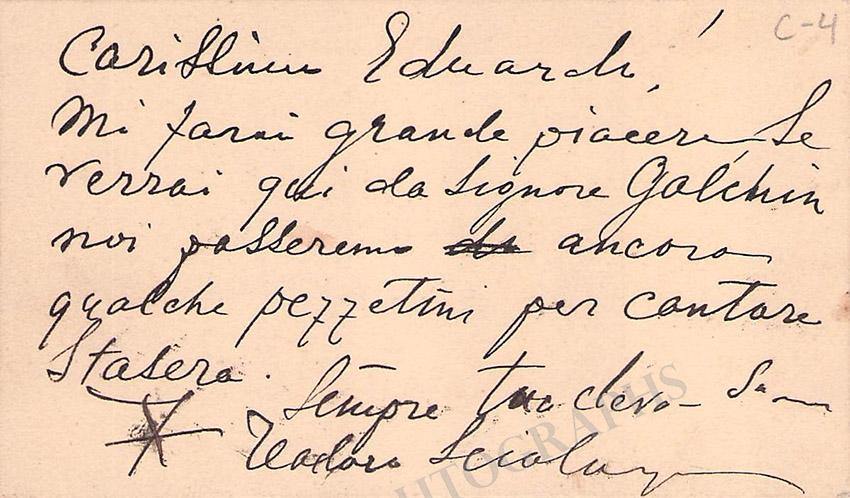 C-4
Carissimo Eduardo,
Mi farai grande piacere, se
verrai qui da Signore Galchin
noi passeremo ancora
qualche pezzetini per cantare
Stasera.
Sempre tuo devo-
Teodoro Scialap
AUTOGRAPHS